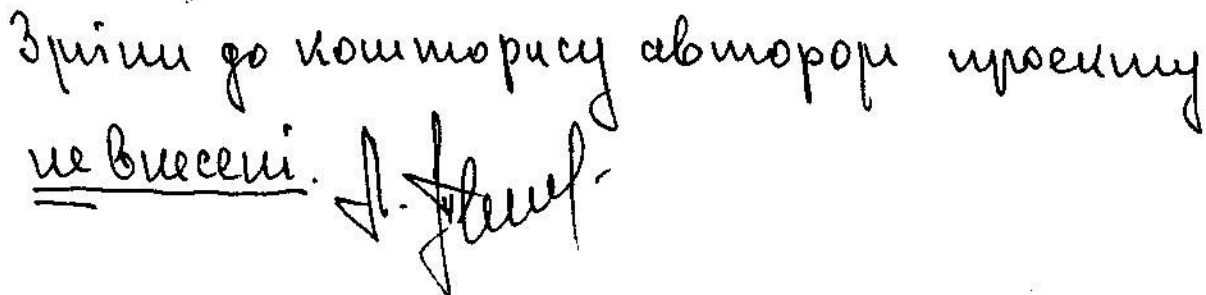 Зміни до кошторису автором проекту
не внесені.